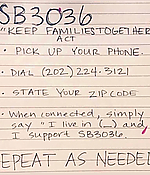 SB3036
"KEEP FAMILIES TOGETHER
ACT
• PICK UP YOUR PHONE.
• DIAL (202) 224.3121
• STATE YOUR ZIP CODE
• When connected, simply
say "I live in (_) and
I support SB3036.
REPEAT AS NEEDED